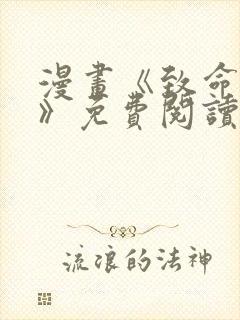 漫畫《致命
》免費閱讀
流浪的法神